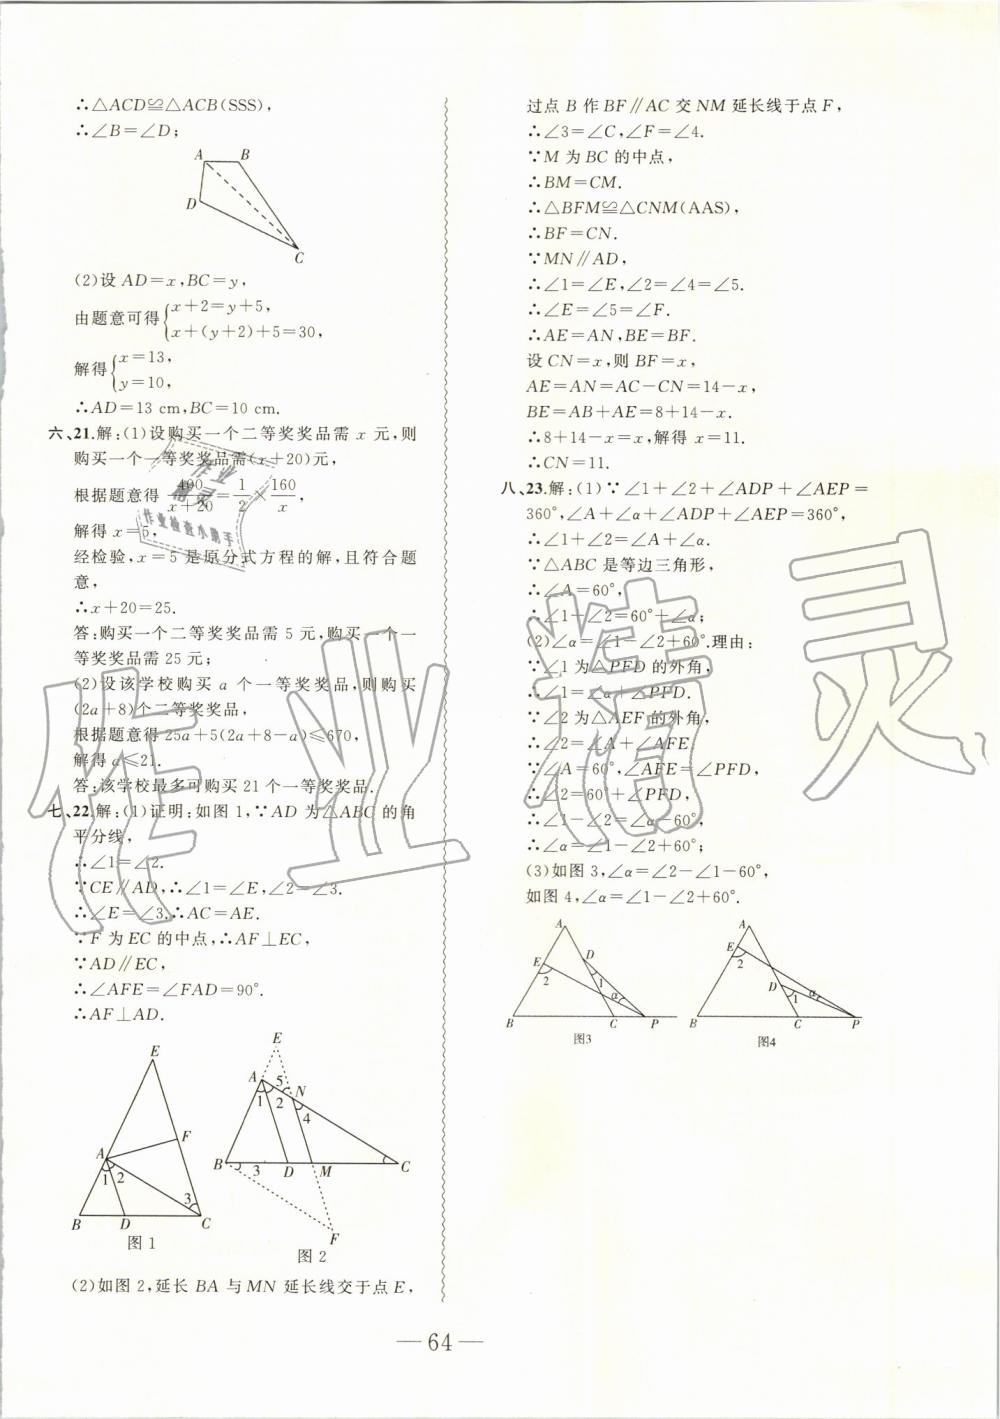 ∴△ACD≌△ACB(SSS),
∴∠B=∠D;
A B
D
C
(2)设 AD=x,BC=y,
由题意可得{x+2=y+5,
x+(y+2)+5=30,
解得{x=13,
y=10,
∴AD=13 cm,BC=10 cm.
六、21.解:(1)设购买一个二等奖奖品需 x 元,则
购买一个一等奖奖品需(x+20)元,
根据题意得 400/(x+20)=1/2×160/x,
解得 x=5,
经检验,x=5 是原分式方程的解,且符合题
意,
∴x+20=25.
答:购买一个二等奖奖品需 5 元,购买一个一
等奖奖品需 25 元;
(2)设该学校购买 a 个一等奖奖品,则购买
(2a+8)个二等奖奖品,
根据题意得25a+5(2a+8-a)≤670,
解得 a≤21.
答:该学校最多可购买 21 个一等奖奖品.
七、22.解:(1)证明:如图 1,∵AD 为△ABC 的角
平分线,
∴∠1=∠2.
∵CE∥AD,∴∠1=∠E,∠2=∠3.
∴∠E=∠3.∴AC=AE.
∵F 为 EC 的中点,∴AF⊥EC,
∵AD∥EC,
∴∠AFE=∠FAD=90°.
∴AF⊥AD.
E
F
A
1 2
3
B D C
图 1
E
A 5 N
1 2 4
B 3 D M C
F
图 2
(2)如图 2,延长 BA 与 MN 延长线交于点 E,
过点 B 作 BF∥AC 交 NM 延长线于点 F,
∴∠3=∠C,∠F=∠4.
∵M 为 BC 的中点,
∴BM=CM.
∴△BFM≌△CNM(AAS),
∴BF=CN.
∵MN∥AD,
∴∠1=∠E,∠2=∠4=∠5.
∴∠E=∠5=∠F.
∴AE=AN,BE=BF.
设 CN=x,则 BF=x,
AE=AN=AC-CN=14-x,
BE=AB+AE=8+14-x.
∴8+14-x=x,解得 x=11.
∴CN=11.
八、23.解:(1)∵∠1+∠2+∠ADP+∠AEP=
360°,∠A+∠α+∠ADP+∠AEP=360°,
∴∠1+∠2=∠A+∠α.
∵△ABC 是等边三角形,
∴∠A=60°,
∴∠1+∠2=60°+∠α;
(2)∠α=∠1-∠2+60°.理由:
∵∠1为△PFD 的外角,
∴∠1=∠α+∠PFD.
∵∠2为△AEF的外角,
∴∠2=∠A+∠AFE.
∵∠A=60°,∠AFE=∠PFD,
∴∠2=60°+∠PFD,
∴∠1-∠2=∠α-60°,
∴∠α=∠1-∠2+60°;
(3)如图 3,∠α=∠2-∠1-60°,
如图 4,∠α=∠1-∠2+60°.
A
E D
2 1 α
B C P
图3
A
E
2
D 1 α
B C P
图4
— 64 —
作业精灵
作业
精灵
作业检查小助手